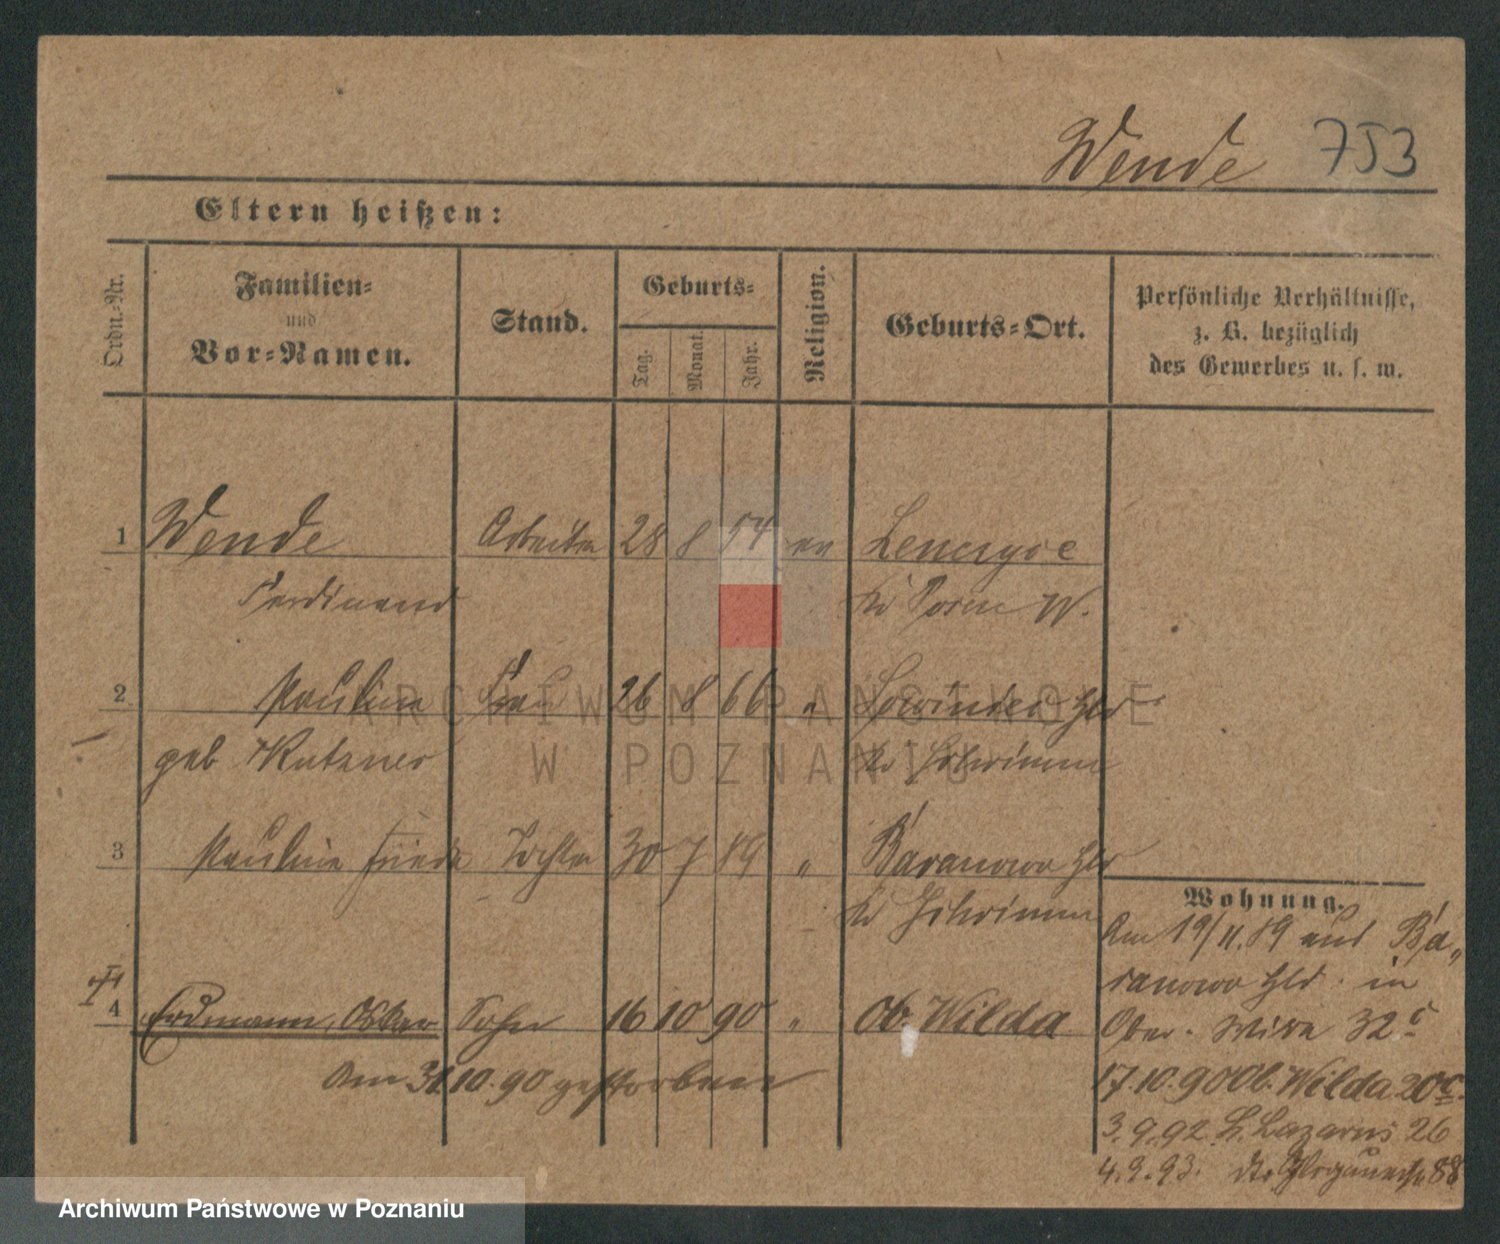 Wende 753
Eltern heißen:
Ordn.-Nr.
Familien-
und
Vor-Namen.
Stand.
Geburts-
Tag.
Monat.
Jahr.
Religion.
Geburts-Ort.
Persönliche Verhältnisse,
z. B. bezüglich
des Gewerbes u. s. w.
1 Wende Arbeiter 28 8 54 ev
Ferdinand Kr Posen W.
2 Pauline Frau 26 8 66 " Hld
geb Kutzner Kr Schrimm
3 Pauline Frieda Tochter 30 7 89 " Baranowo Hld
Kr Schrimm
4 Erdmann, Oskar Sohn 16 10 90 " Ob. Wilda
Am 31.10.90 gestorben
Wohnung.
Am 19/11.89 aus Ba-
ranowo Hld. in
Ober-Wilda 32
17.10.90 Ob. Wilda 20c.
3.9.92 St. Lazarus 26
4.9.93. 88
ARCHIWUM PAŃSTWOWE
W POZNANIU
Archiwum Państwowe w Poznaniu